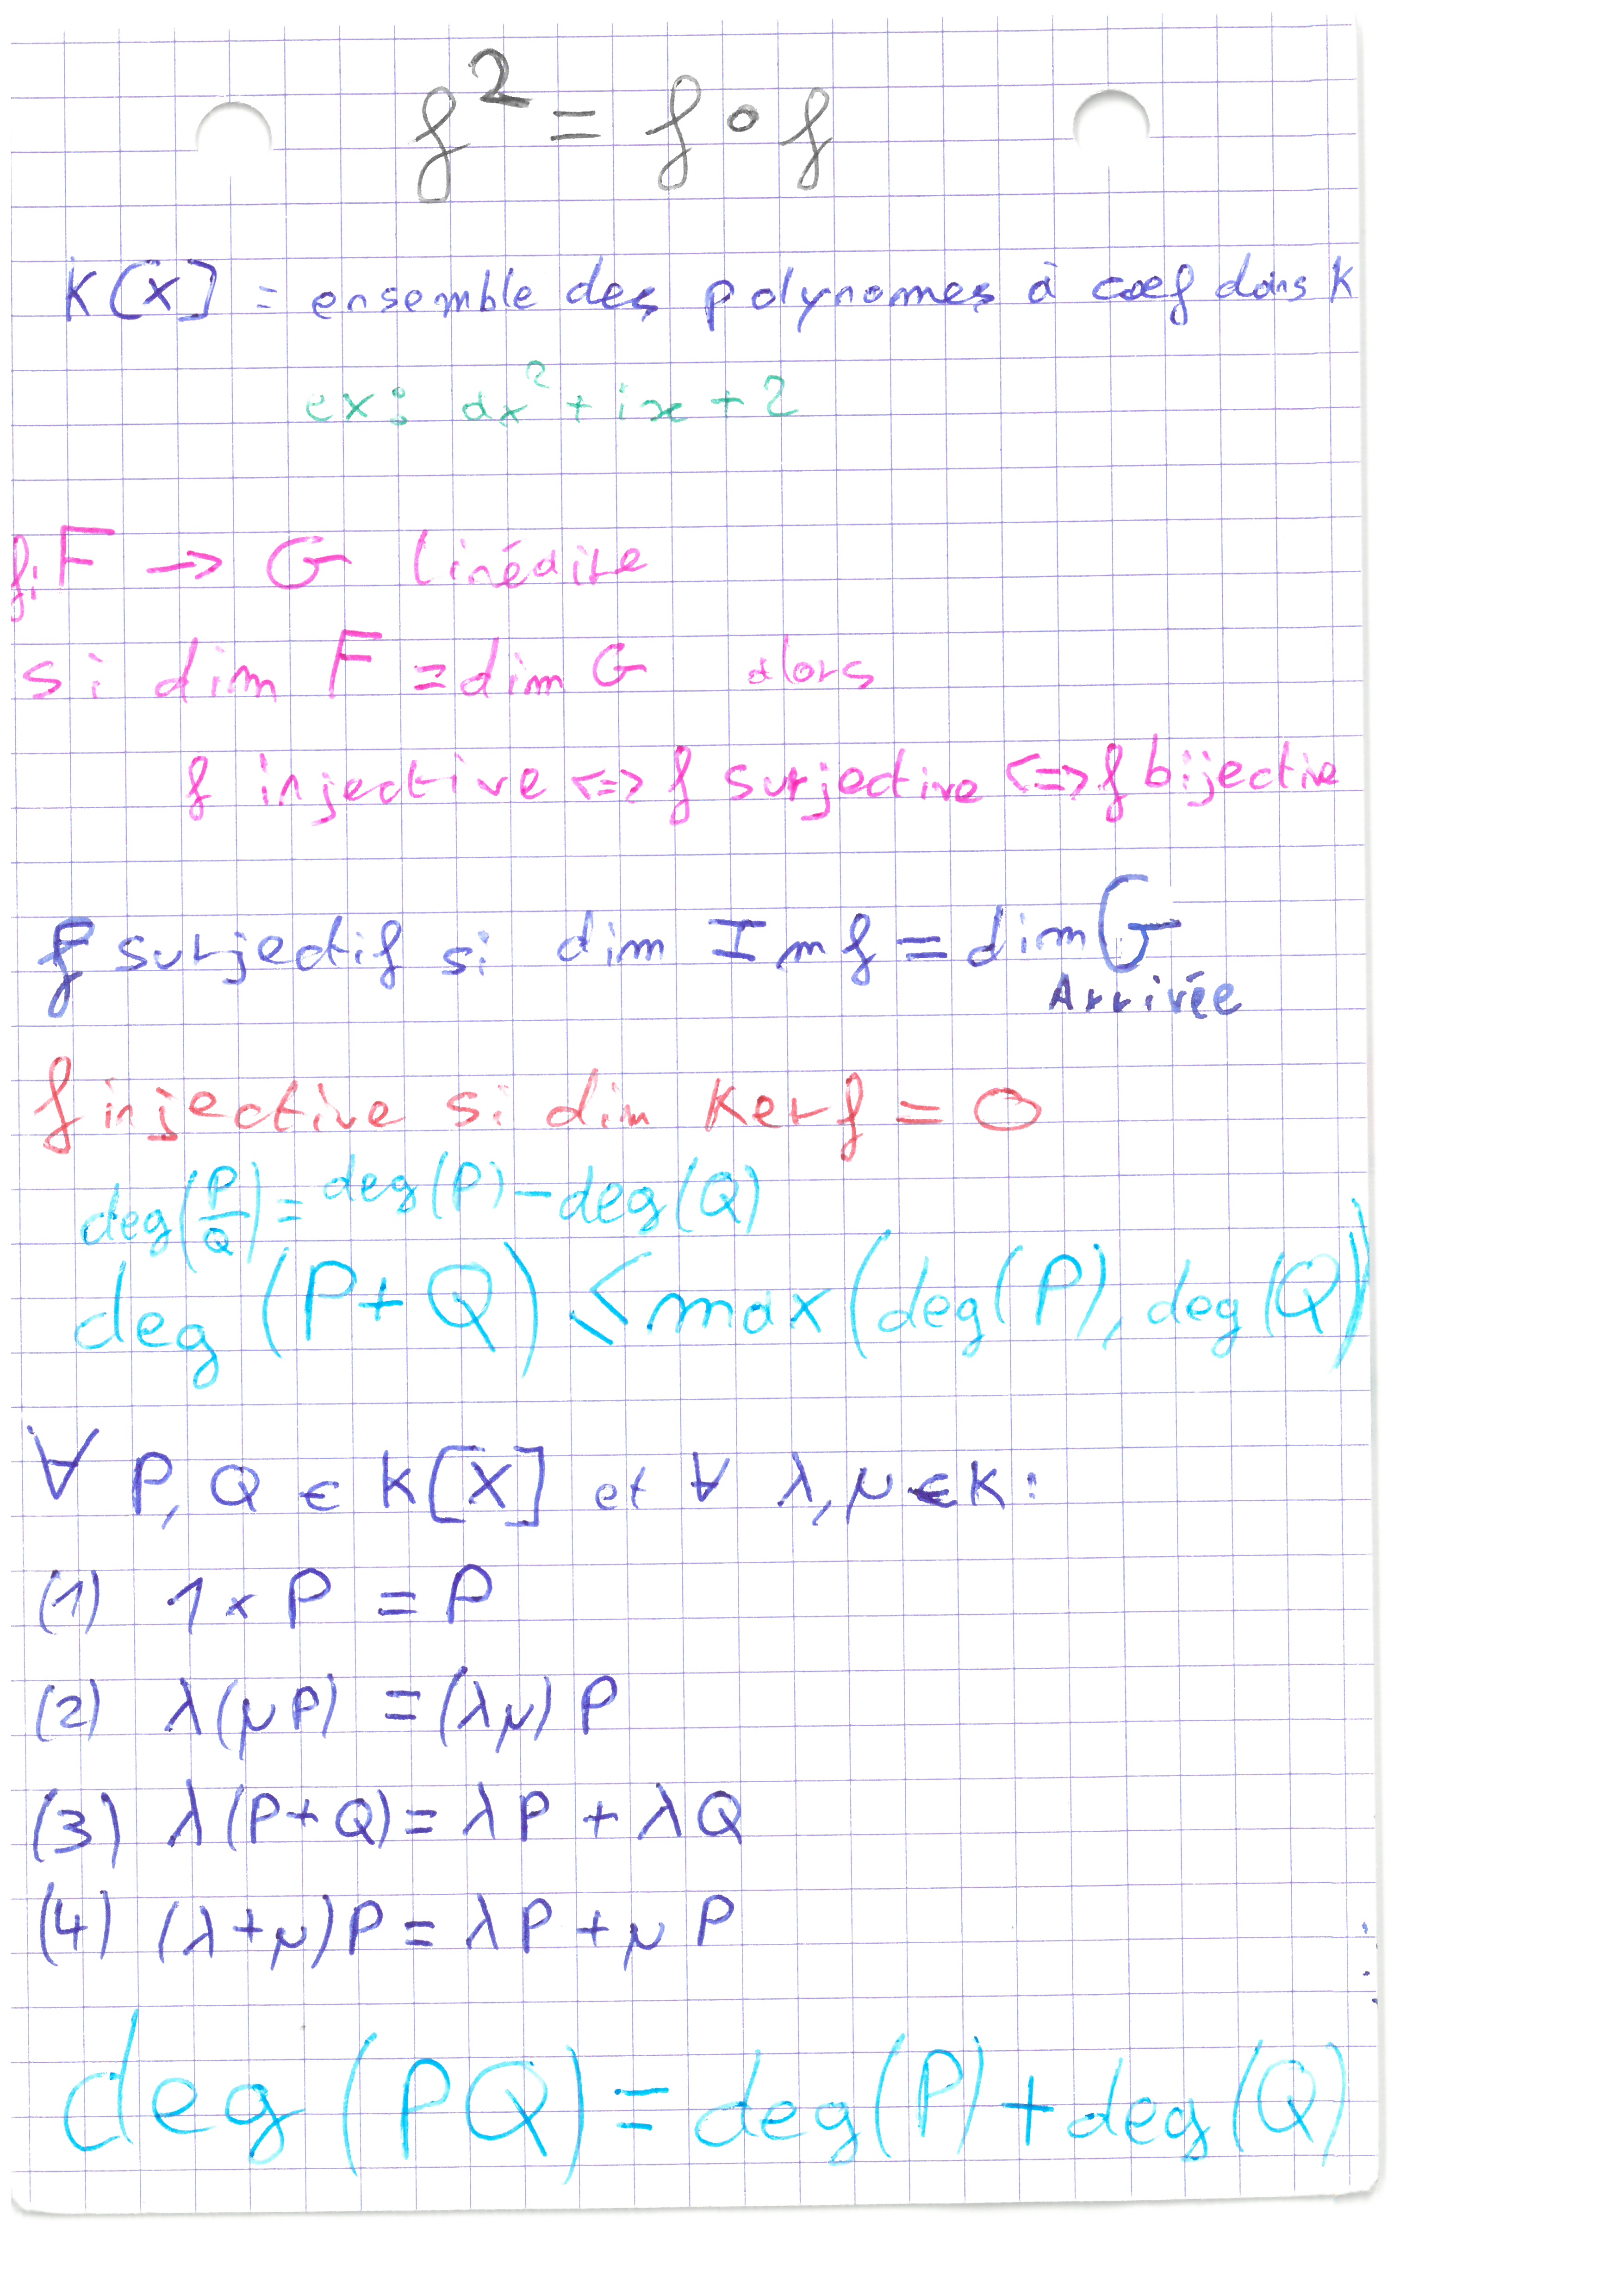 f² = f ∘ f
K[X] = ensemble des polynomes à coef dans K
ex : ax² + ix + 2
f: F → G linéaire
si dim F = dim G alors
f injective <=> f surjective <=> f bijective
f surjectif si dim Im f = dim G
Arrivée
f injective si dim Ker f = 0
deg(P/Q) = deg(P) - deg(Q)
deg (P+Q) ≤ max(deg(P), deg(Q))
∀ P, Q ∈ K[X] et ∀ λ, μ ∈ K :
(1) 1 × P = P
(2) λ(μP) = (λμ) P
(3) λ(P+Q) = λP + λQ
(4) (λ+μ)P = λP + μP
deg (PQ) = deg(P) + deg(Q)